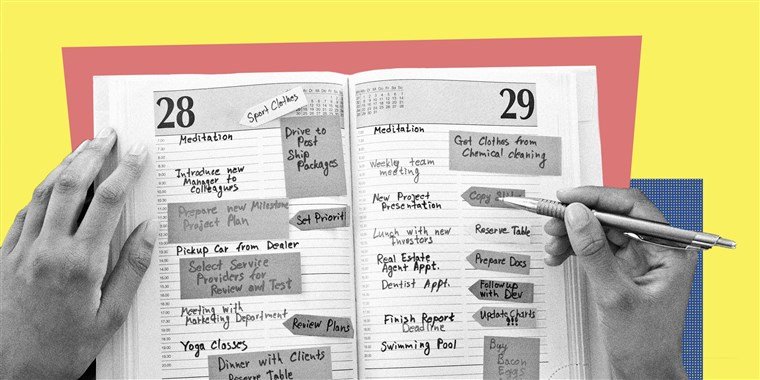 28
Sport Clothes
Meditation
Drive to
Post
Ship
Packages
Introduce new
Manager to
Colleagues
Prepare new Milestone
Project Plan
Set Priorit
Pickup Car from Dealer
Select Service
Providers for
Review and Test
Meeting with
Marketing Department
Review Plans
Yoga Classes
Dinner with Clients
Reserve Table
29
Meditation
Get Clothes from
Chemical cleaning
Weekly team
meeting
Copy
New Project
Presentation
Reserve Table
Lunch with new
Investors
Real Estate
Agent Appt.
Prepare Docs
Dentist Appt.
Follow up
with Dev
Update Charts
!!!
Finish Report
Deadline
Swimming Pool
Buy
Bacon
Eggs